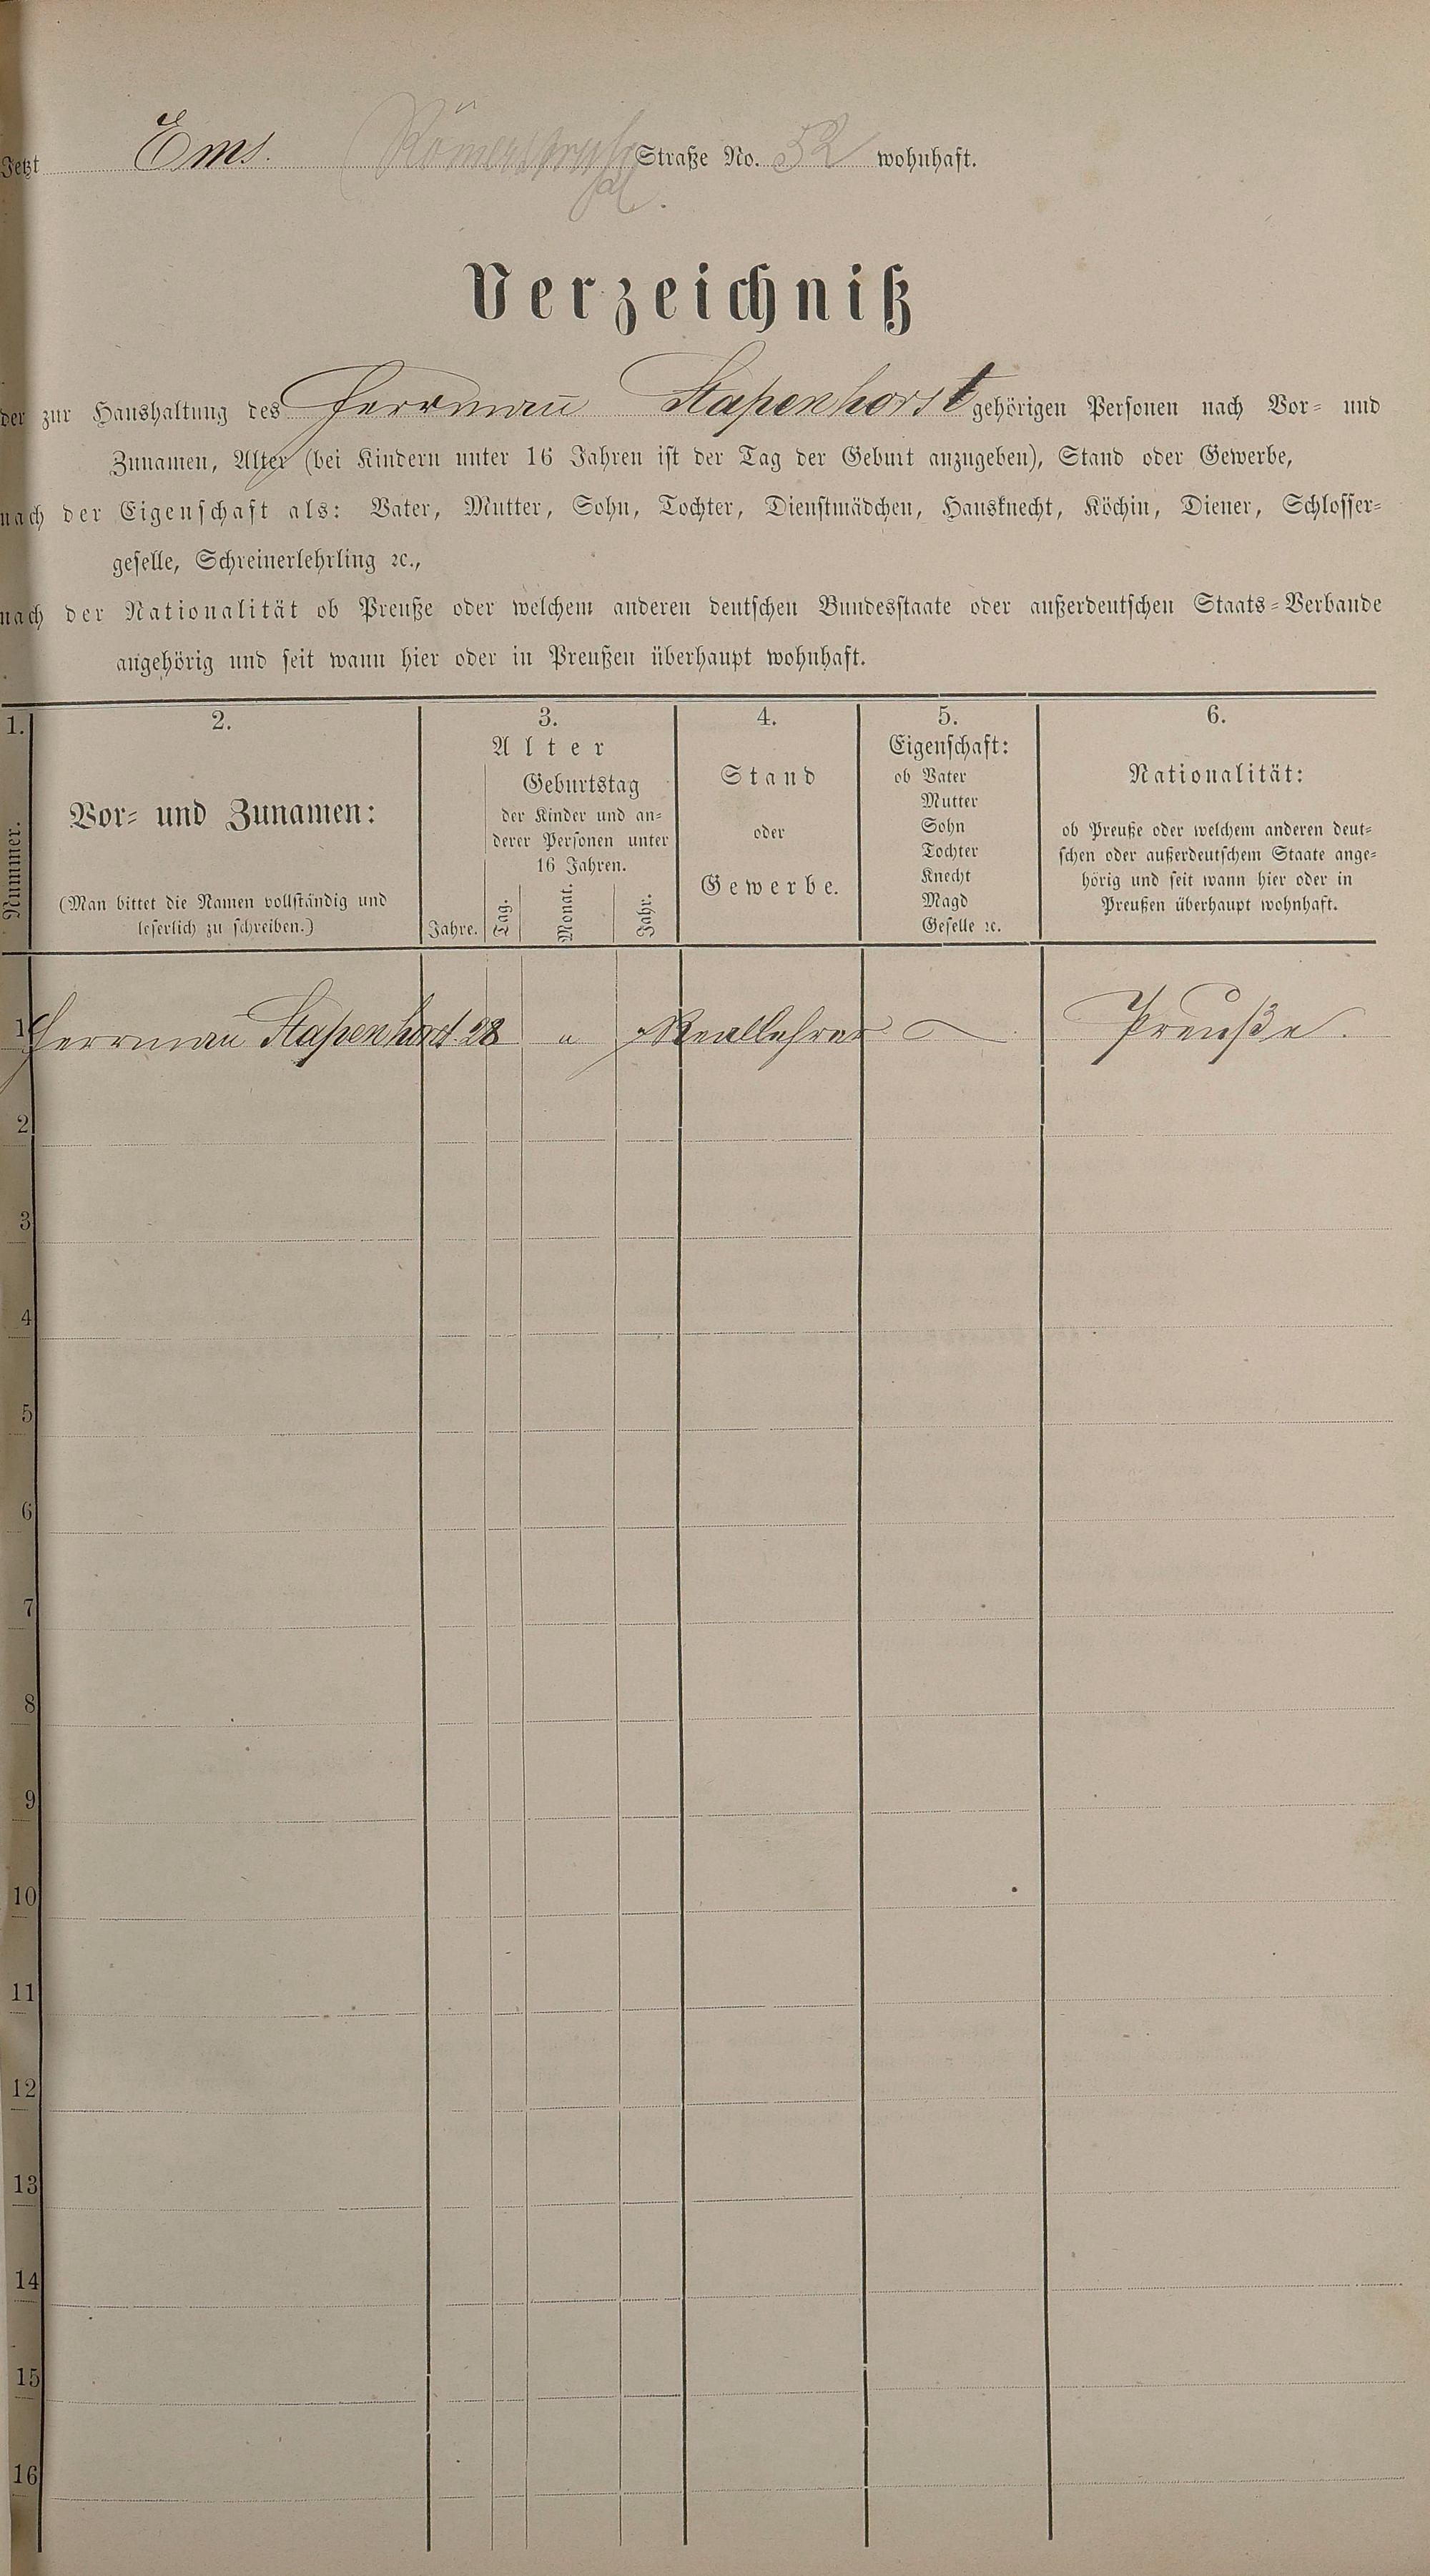 Jetzt Ems. Straße No. 52 wohnhaft.
Verzeichniß
der zur Haushaltung des Herrmann Stapenhorst gehörigen Personen nach Vor- und
Zunamen, Alter (bei Kindern unter 16 Jahren ist der Tag der Geburt anzugeben), Stand oder Gewerbe,
nach der Eigenschaft als: Vater, Mutter, Sohn, Tochter, Dienstmädchen, Hausknecht, Köchin, Diener, Schlosser-
geselle, Schreinerlehrling ꝛc.,
nach der Nationalität ob Preuße oder welchem anderen deutschen Bundesstaate oder außerdeutschen Staats-Verbande
angehörig und seit wann hier oder in Preußen überhaupt wohnhaft.
1.
Nummer.
2.
Vor- und Zunamen:
(Man bittet die Namen vollständig und
leserlich zu schreiben.)
3.
Alter
Jahre.
Geburtstag
der Kinder und an-
derer Personen unter
16 Jahren.
Tag.
Monat.
Jahr.
4.
Stand
oder
Gewerbe.
5.
Eigenschaft:
ob Vater
Mutter
Sohn
Tochter
Knecht
Magd
Geselle ꝛc.
6.
Nationalität:
ob Preuße oder welchem anderen deut-
schen oder außerdeutschem Staate ange-
hörig und seit wann hier oder in
Preußen überhaupt wohnhaft.
1 Herrmann Stapenhorst. 28 Reallehrer Preuße.
2
3
4
5
6
7
8
9
10
11
12
13
14
15
16